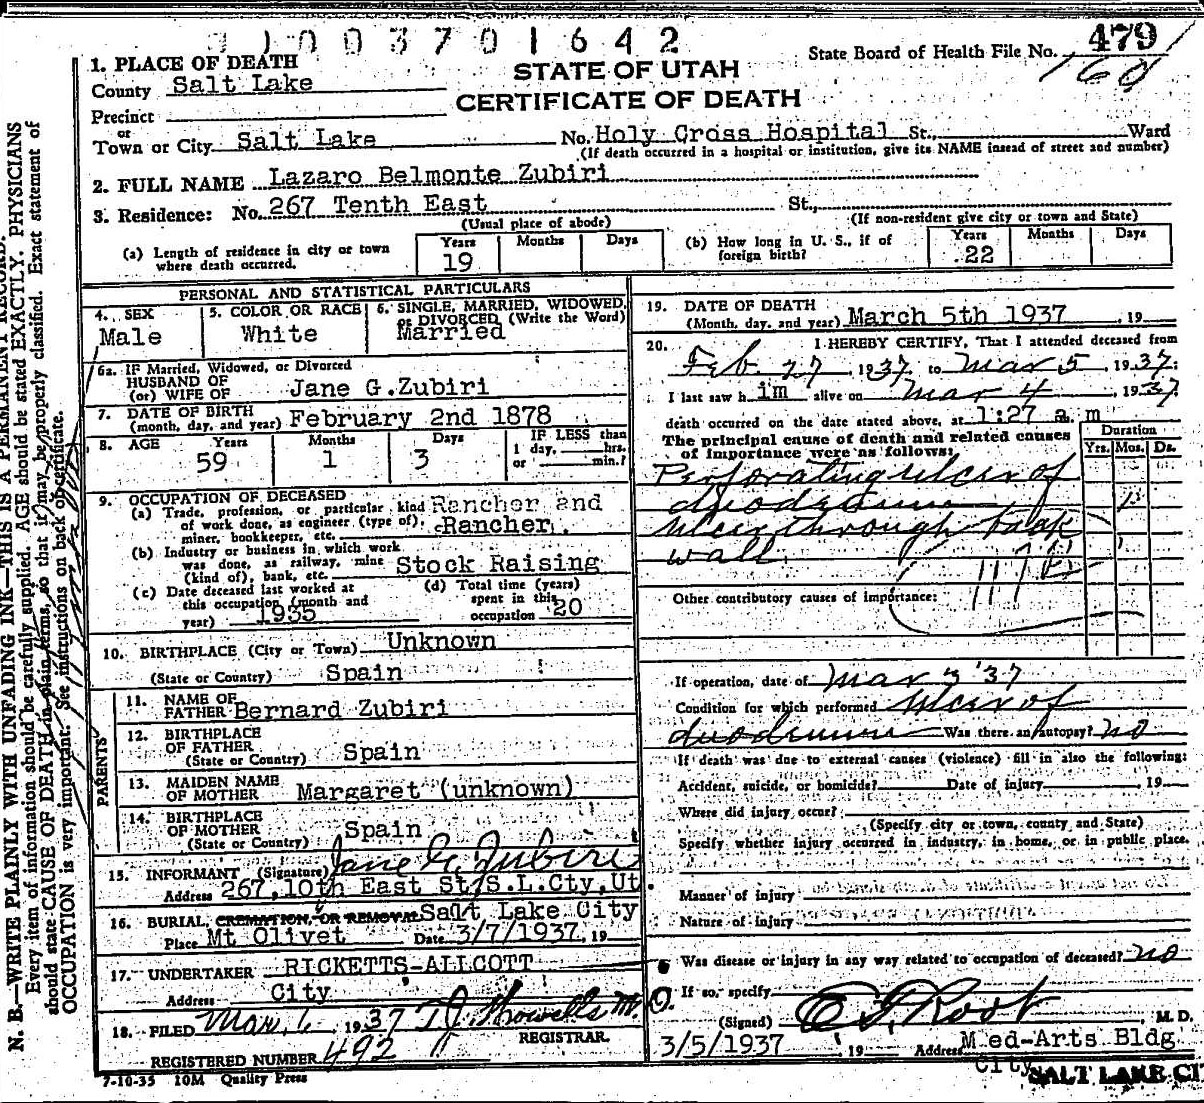 1003701642
State Board of Health File No. 479
160
1. PLACE OF DEATH
STATE OF UTAH
County Salt Lake
CERTIFICATE OF DEATH
Precinct
or
Town or City Salt Lake No. Holy Cross Hospital St., Ward
(If death occurred in a hospital or institution, give its NAME instead of street and number)
2. FULL NAME Lazaro Belmonte Zubiri
3. Residence: No. 267 Tenth East St.,
(Usual place of abode) (If non-resident give city or town and State)
(a) Length of residence in city or town where death occurred. Years 19 Months Days
(b) How long in U. S., if of foreign birth? Years 22 Months Days
PERSONAL AND STATISTICAL PARTICULARS
4. SEX Male
5. COLOR OR RACE White
6. SINGLE, MARRIED, WIDOWED, or DIVORCED (Write the Word) Married
6a. IF Married, Widowed, or Divorced
HUSBAND OF
(or) WIFE OF Jane G. Zubiri
7. DATE OF BIRTH
(month, day, and year) February 2nd 1878
8. AGE Years 59 Months 1 Days 3 IF LESS than 1 day, hrs. or min.?
9. OCCUPATION OF DECEASED
(a) Trade, profession, or particular kind of work done, as engineer (type of), miner, bookkeeper, etc. Rancher and Rancher.
(b) Industry or business in which work was done, as railway, mine (kind of), bank, etc. Stock Raising
(c) Date deceased last worked at this occupation (month and year) 1935
(d) Total time (years) spent in this occupation 20
10. BIRTHPLACE (City or Town) Unknown
(State or Country) Spain
PARENTS
11. NAME OF FATHER Bernard Zubiri
12. BIRTHPLACE OF FATHER
(State or Country) Spain
13. MAIDEN NAME OF MOTHER Margaret (unknown)
14. BIRTHPLACE OF MOTHER
(State or Country) Spain
15. INFORMANT (Signature) Jane G. Zubiri
Address 267, 10th East St, S.L.Cty, Ut.
16. BURIAL, CREMATION, OR REMOVAL Salt Lake City
Place Mt Olivet Date 3/7/1937, 19
17. UNDERTAKER RICKETTS-ALLCOTT
Address City
18. FILED Mar. 6 1937 T. J. Howells M.D.
REGISTRAR.
REGISTERED NUMBER 492
7-10-35 10M Quality Press
19. DATE OF DEATH
(Month, day, and year) March 5th 1937, 19
20. I HEREBY CERTIFY, That I attended deceased from
Feb. 27, 1937, to Mar 5, 1937.
I last saw him alive on Mar 4, 1937
death occurred on the date stated above, at 1:27 a m
The principal cause of death and related causes of importance were as follows:
Duration
Yrs. Mos. Ds.
Perforating ulcer of
duodenum
Ulcer through back
wall
Other contributory causes of importance:
If operation, date of Mar 3 '37
Condition for which performed Ulcer of
duodenum Was there an autopsy? no
If death was due to external causes (violence) fill in also the following:
Accident, suicide, or homicide? Date of injury, 19
Where did injury occur?
(Specify city or town, county and State)
Specify whether injury occurred in industry, in home, or in public place.
Manner of injury
Nature of injury
Was disease or injury in any way related to occupation of deceased? no
If so, specify
(Signed) E. F. Root, M. D.
3/5/1937 19 Address Med-Arts Bldg
City
SALT LAKE CI
N. B.—WRITE PLAINLY WITH UNFADING INK—THIS IS A PERMANENT RECORD.
Every item of information should be carefully supplied. AGE should be stated EXACTLY. PHYSICIANS
should state CAUSE OF DEATH in plain terms, so that it may be properly classified. Exact statement of
OCCUPATION is very important. See instructions on back of certificate.